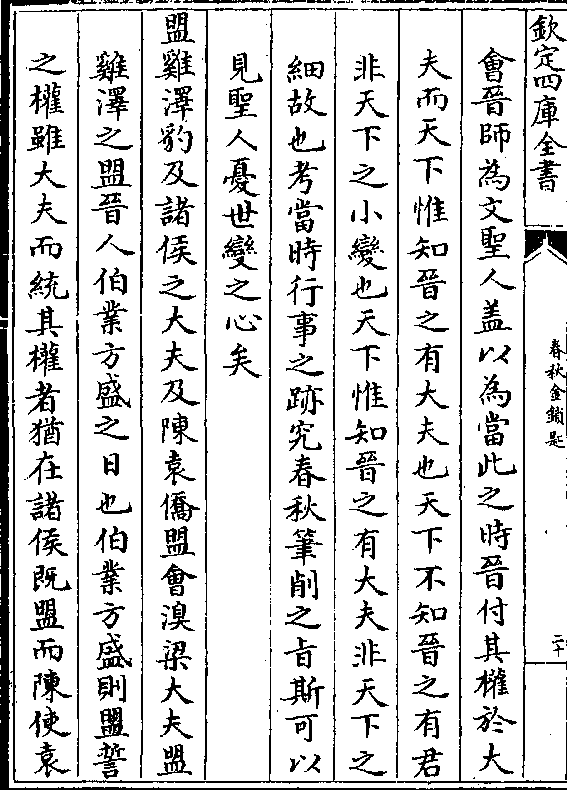 欽定四庫全書
春秋金鎖匙
二十
會晉師為文聖人盖以為當此之時晉付其權於大
夫而天下惟知晉之有大夫也天下不知晉之有君
非天下之小變也天下惟知晉之有大夫非天下之
細故也考當時行事之跡究春秋筆削之旨斯可以
見聖人憂世變之心矣
盟雞澤豹及諸侯之大夫及陳袁僑盟會溴梁大夫盟
雞澤之盟晉人伯業方盛之日也伯業方盛則盟誓
之權雖大夫而統其權者猶在諸侯既盟而陳使袁